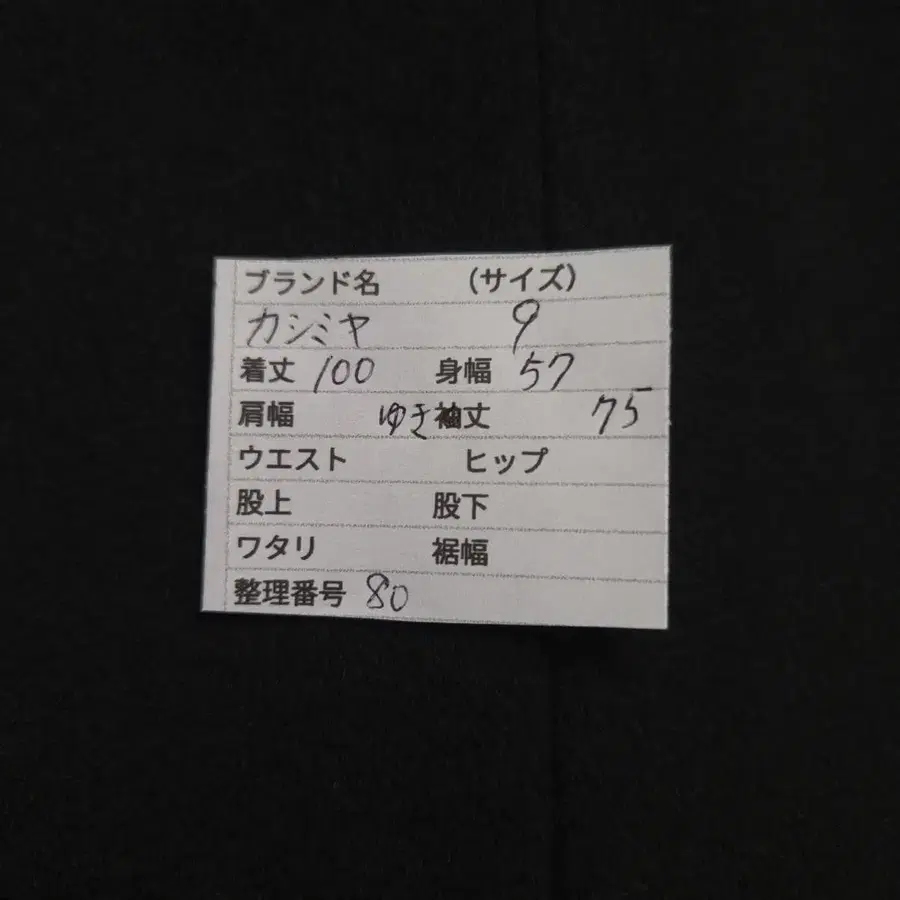 ブランド名 (サイズ)
カシミヤ 9
着丈 100 身幅 57
肩幅 ゆき袖丈 75
ウエスト ヒップ
股上 股下
ワタリ 裾幅
整理番号 80